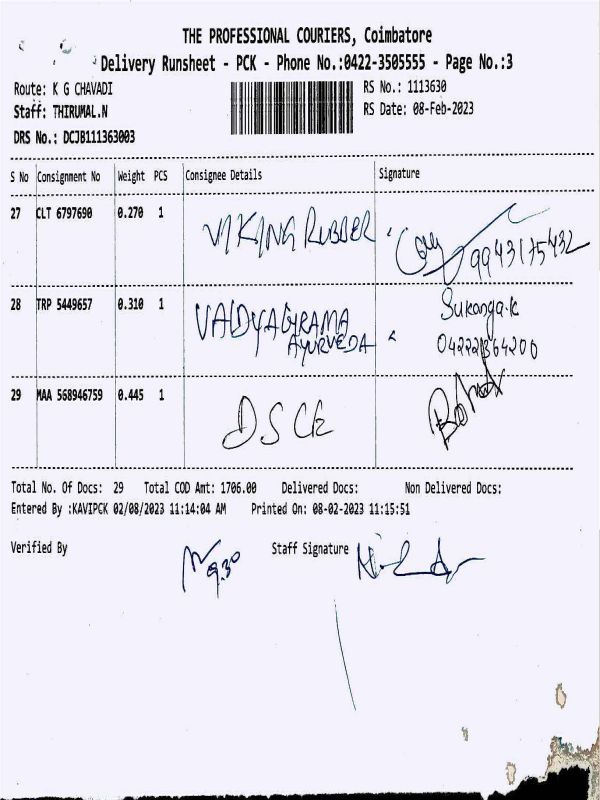 THE PROFESSIONAL COURIERS, Coimbatore
Delivery Runsheet - PCK - Phone No.:0422-3505555 - Page No.:3
Route: K G CHAVADI
RS No.: 1113630
Staff: THIRUMAL.N
RS Date: 08-Feb-2023
DRS No.: DCJB111363003
S No Consignment No Weight PCS Consignee Details Signature
27 CLT 6797690 0.270 1 VIKING RUBBER 9943175432
28 TRP 5449657 0.310 1 VAIDYAGRAMA AYURVEDA Sukanya.K
29 MAA 568946759 0.445 1
Total No. Of Docs: 29 Total COD Amt: 1706.00 Delivered Docs: Non Delivered Docs:
Entered By :KAVIPCK 02/08/2023 11:14:04 AM Printed On: 08-02-2023 11:15:51
Verified By 9.30 Staff Signature